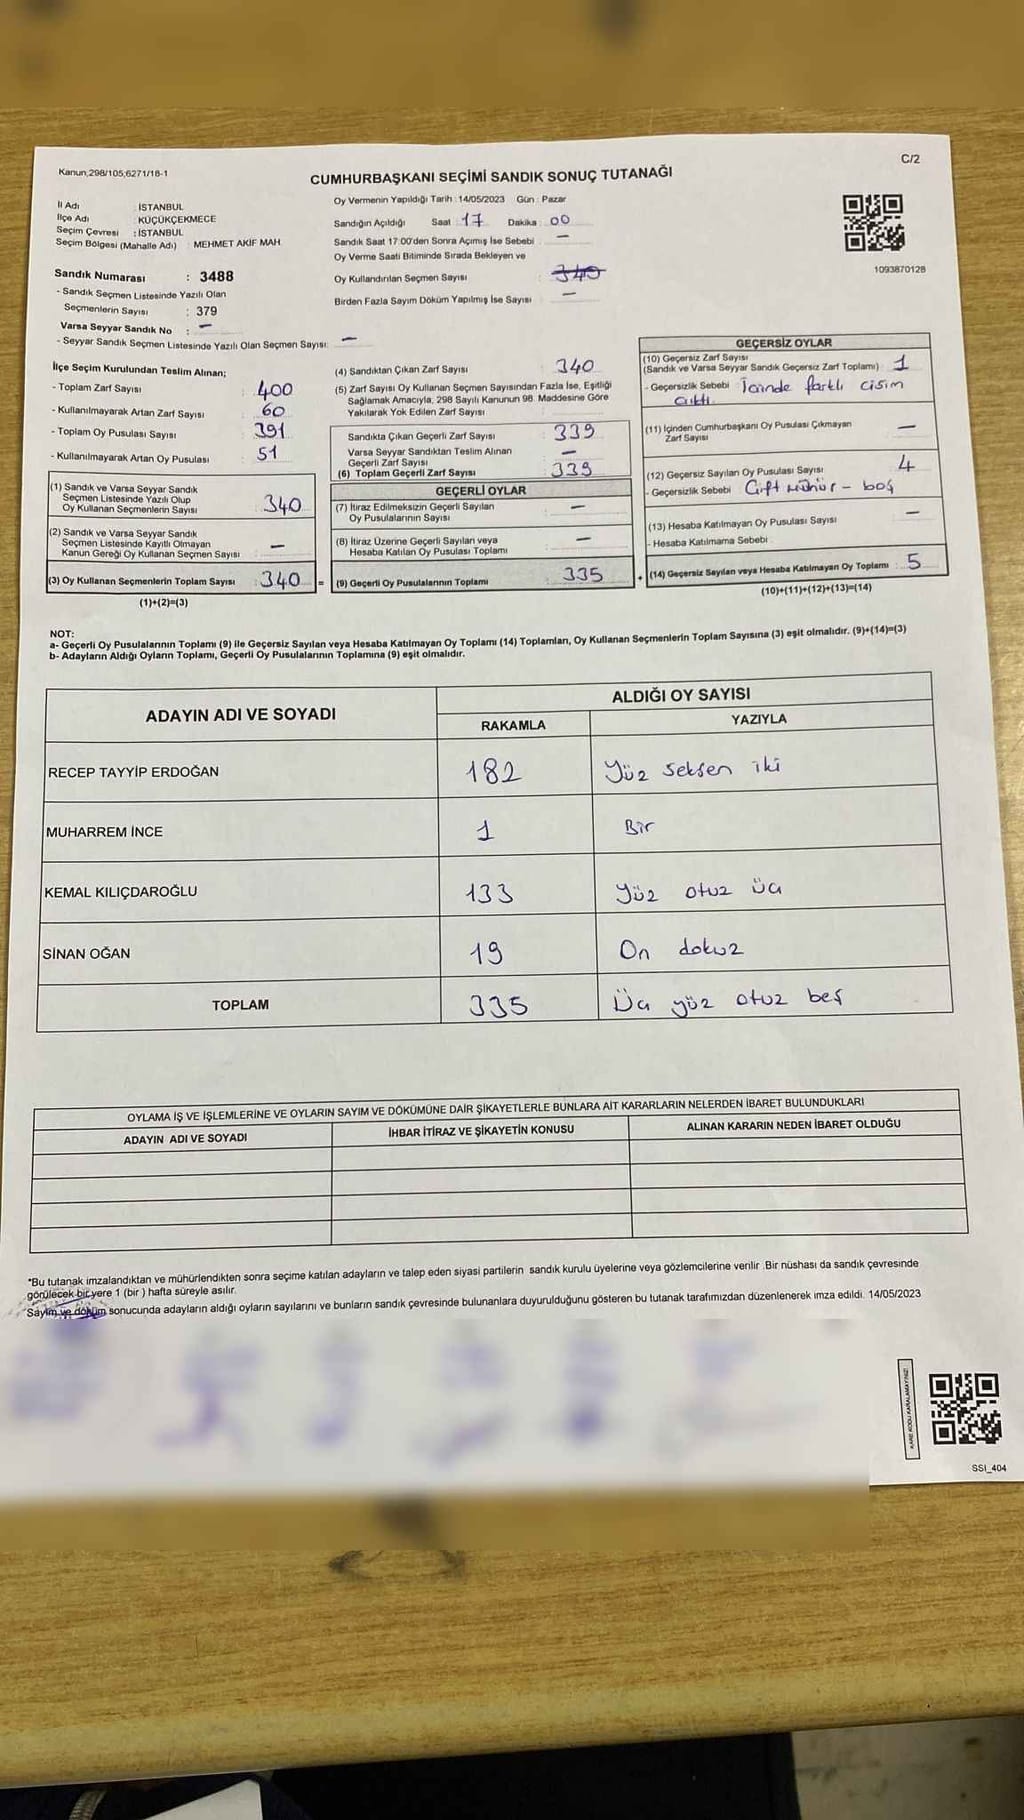 Kanun,298/105,6271/18-1
C/2
CUMHURBAŞKANI SEÇİMİ SANDIK SONUÇ TUTANAĞI
İl Adı : İSTANBUL
İlçe Adı : KÜÇÜKÇEKMECE
Seçim Çevresi : İSTANBUL
Seçim Bölgesi (Mahalle Adı) : MEHMET AKİF MAH.
Sandık Numarası : 3488
- Sandık Seçmen Listesinde Yazılı Olan
Seçmenlerin Sayısı : 379
Varsa Seyyar Sandık No : —
- Seyyar Sandık Seçmen Listesinde Yazılı Olan Seçmen Sayısı: —
Oy Vermenin Yapıldığı Tarih : 14/05/2023 Gün : Pazar
Sandığın Açıldığı Saat : 17 Dakika : 00
Sandık Saat 17:00'den Sonra Açımış İse Sebebi : —
Oy Verme Saati Bitiminde Sırada Bekleyen ve
Oy Kullandırılan Seçmen Sayısı : 340
Birden Fazla Sayım Döküm Yapılmış İse Sayısı : —
1093870128
İlçe Seçim Kurulundan Teslim Alınan;
- Toplam Zarf Sayısı : 400
- Kullanılmayarak Artan Zarf Sayısı : 60
- Toplam Oy Pusulası Sayısı : 391
- Kullanılmayarak Artan Oy Pusulası : 51
(1) Sandık ve Varsa Seyyar Sandık
Seçmen Listesinde Yazılı Olup
Oy Kullanan Seçmenlerin Sayısı : 340
(2) Sandık ve Varsa Seyyar Sandık
Seçmen Listesinde Kayıtlı Olmayan
Kanun Gereği Oy Kullanan Seçmen Sayısı : —
(3) Oy Kullanan Seçmenlerin Toplam Sayısı : 340 =
(1)+(2)=(3)
(4) Sandıktan Çıkan Zarf Sayısı : 340
(5) Zarf Sayısı Oy Kullanan Seçmen Sayısından Fazla İse, Eşitliği
Sağlamak Amacıyla, 298 Sayılı Kanunun 98. Maddesine Göre
Yakılarak Yok Edilen Zarf Sayısı :
Sandıkta Çıkan Geçerli Zarf Sayısı : 339
Varsa Seyyar Sandıktan Teslim Alınan
Geçerli Zarf Sayısı : —
(6) Toplam Geçerli Zarf Sayısı : 339
GEÇERLİ OYLAR
(7) İtiraz Edilmeksizin Geçerli Sayılan
Oy Pusulalarının Sayısı : —
(8) İtiraz Üzerine Geçerli Sayılan veya
Hesaba Katılan Oy Pusulası Toplamı : —
(9) Geçerli Oy Pusulalarının Toplamı : 335 +
GEÇERSİZ OYLAR
(10) Geçersiz Zarf Sayısı
(Sandık ve Varsa Seyyar Sandık Geçersiz Zarf Toplamı) : 1
- Geçersizlik Sebebi : İçinde farklı cisim
çıktı.
(11) İçinden Cumhurbaşkanı Oy Pusulası Çıkmayan
Zarf Sayısı : —
(12) Geçersiz Sayılan Oy Pusulası Sayısı : 4
- Geçersizlik Sebebi : Çift mühür - boş
(13) Hesaba Katılmayan Oy Pusulası Sayısı : —
- Hesaba Katılmama Sebebi :
(14) Geçersiz Sayılan veya Hesaba Katılmayan Oy Toplamı : 5
(10)+(11)+(12)+(13)=(14)
NOT:
a- Geçerli Oy Pusulalarının Toplamı (9) ile Geçersiz Sayılan veya Hesaba Katılmayan Oy Toplamı (14) Toplamları, Oy Kullanan Seçmenlerin Toplam Sayısına (3) eşit olmalıdır. (9)+(14)=(3)
b- Adayların Aldığı Oyların Toplamı, Geçerli Oy Pusulalarının Toplamına (9) eşit olmalıdır.
ADAYIN ADI VE SOYADI
ALDIĞI OY SAYISI
RAKAMLA YAZIYLA
RECEP TAYYİP ERDOĞAN 182 Yüz seksen iki
MUHARREM İNCE 1 Bir
KEMAL KILIÇDAROĞLU 133 Yüz otuz üç
SİNAN OĞAN 19 On dokuz
TOPLAM 335 Üç yüz otuz beş
OYLAMA İŞ VE İŞLEMLERİNE VE OYLARIN SAYIM VE DÖKÜMÜNE DAİR ŞİKAYETLERLE BUNLARA AİT KARARLARIN NELERDEN İBARET BULUNDUKLARI
ADAYIN ADI VE SOYADI İHBAR İTİRAZ VE ŞİKAYETİN KONUSU ALINAN KARARIN NEDEN İBARET OLDUĞU
*Bu tutanak imzalandıktan ve mühürlendikten sonra seçime katılan adayların ve talep eden siyasi partilerin sandık kurulu üyelerine veya gözlemcilerine verilir .Bir nüshası da sandık çevresinde
görülecek bir yere 1 (bir ) hafta süreyle asılır.
*Sayım ve döküm sonucunda adayların aldığı oyların sayılarını ve bunların sandık çevresinde bulunanlara duyurulduğunu gösteren bu tutanak tarafımızdan düzenlenerek imza edildi. 14/05/2023
KARE KODU KARALAMAYINIZ!
SSI_404